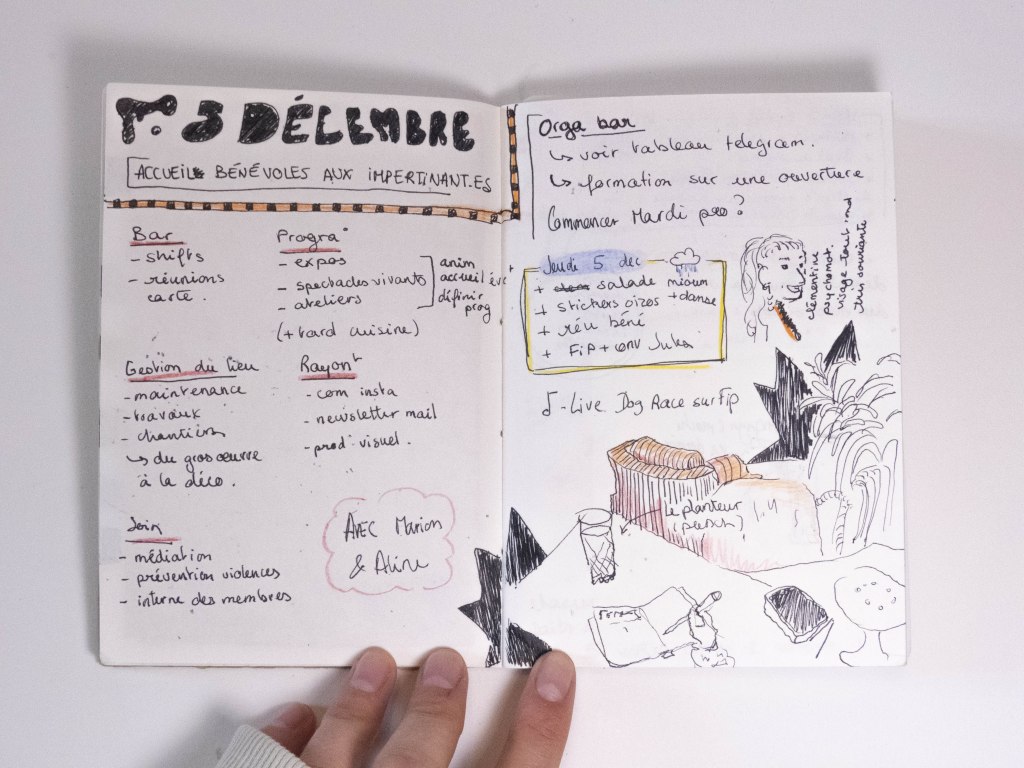 3 DÉCEMBRE
ACCUEIL BÉNÉVOLES AUX IMPERTINANT.ES
Bar
- shifts
- réunions
carte.
Progra°
- expos
- spectacles vivants
- ateliers
(+ tard cuisine)
anim
accueil
définir
prog
Gestion du lieu
- maintenance
- travaux
- chantiers
↳ du gros œuvre
à la déco.
Rayont
- com insta
- newsletter mail
- prod° visuel.
Soin
- médiation
- prévention violences
- interne des membres
AVEC Marion
& Aline
Orga bar
↳ voir tableau telegram.
↳ formation sur une ouverture
Commencer Mardi pro?
Jeudi 5 déc
+ salade miam
+ stickers +danse
+ réu béné
+ FiP +
clémentine
psychomot.
visage tout rond
très souriante
- Live Dog Race sur fip
Le planteur
(punch)